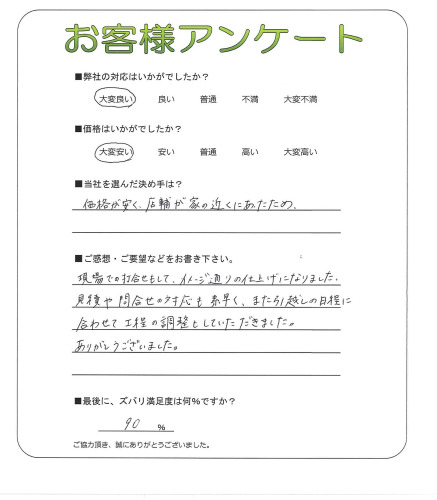 お客様アンケート
■弊社の対応はいかがでしたか？
大変良い 良い 普通 不満 大変不満
■価格はいかがでしたか？
大変安い 安い 普通 高い 大変高い
■当社を選んだ決め手は？
価格が安く、店舗が家の近くにあったため、
■ご感想・ご要望などをお書き下さい。
現場での打合せもして、イメージ通りの仕上げになりました。
見積や問合せの対応も素早く、また引越しの日程に
合わせて工程の調整をしていただきました。
ありがとうございました。
■最後に、ズバリ満足度は何%ですか？
90 %
ご協力頂き、誠にありがとうございました。